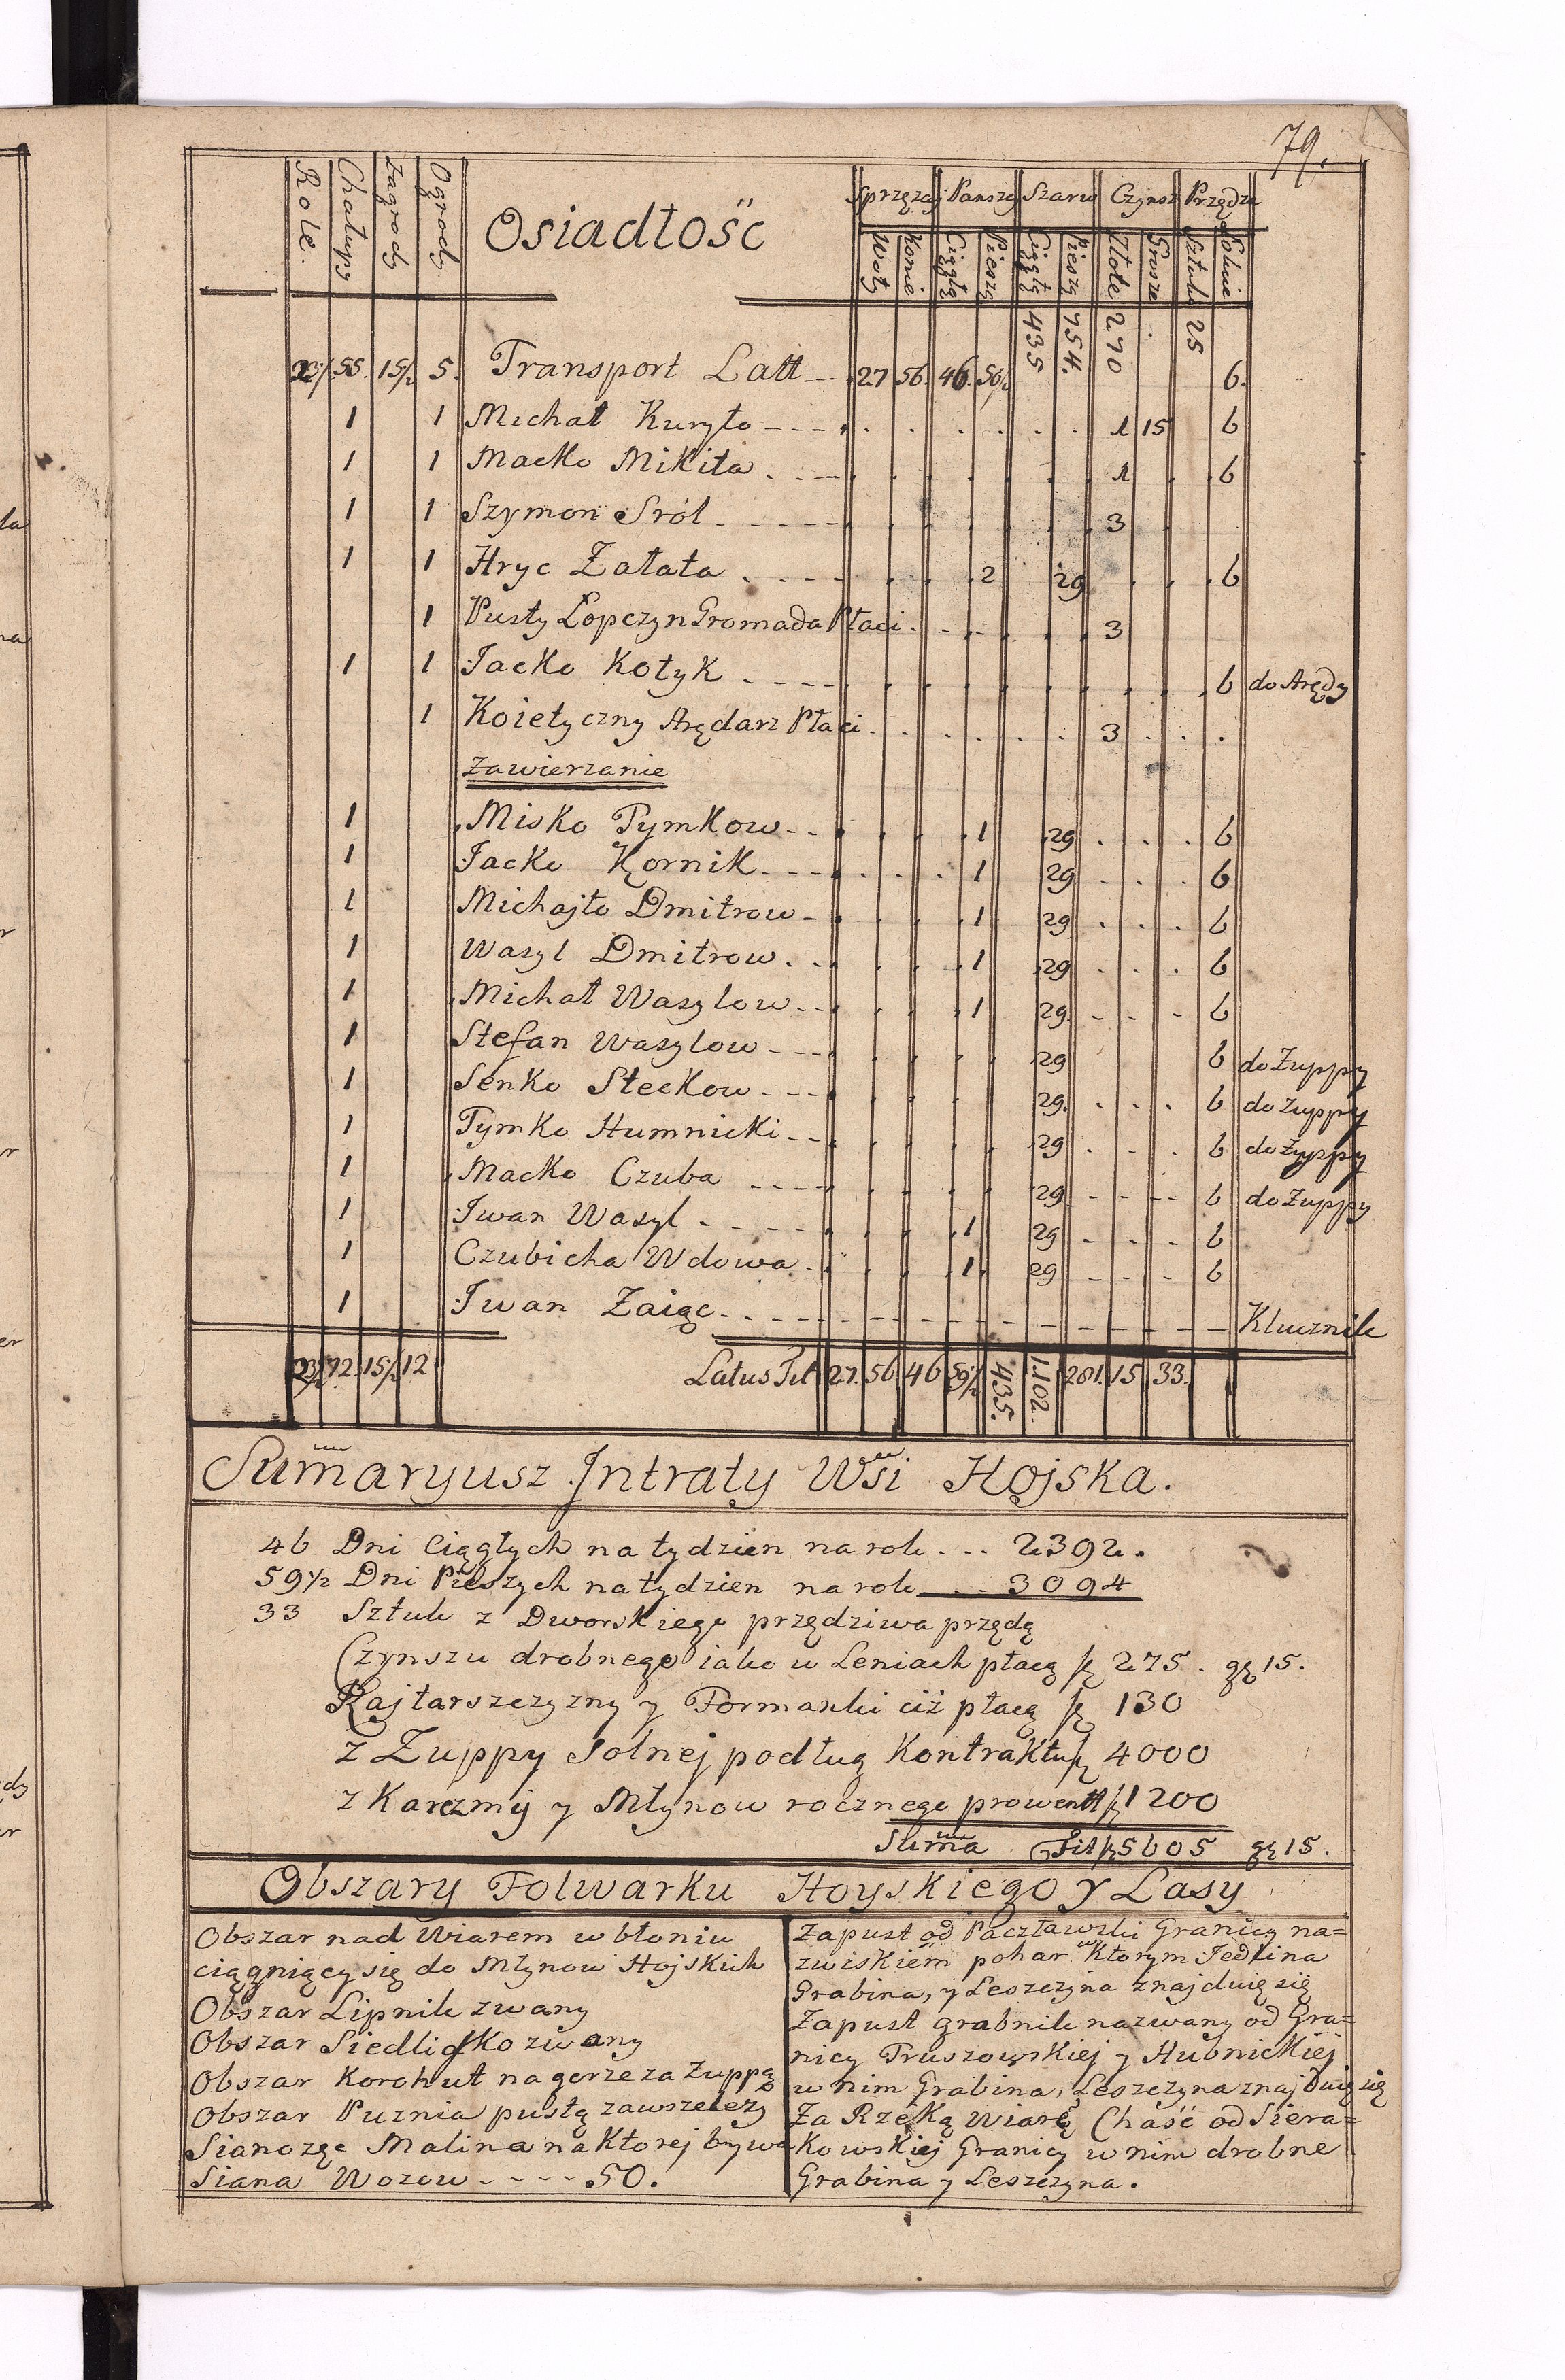 79.
Role. Chałupy Zagrody Ogrody Osiadłość Sprzężaj Pańszcz Szarw Czynsz Przędza
Woły Konie Ciągłą Pieszą Ciągłą Pieszą Złote Grosze Sztuki
55. 15½ 5. Transport Latt 27 56. 46. 50½ 435 754. 270 25 6.
1 1 Michał Kuryło 1 15 6
1 1 Macko Mikita 1 6
1 1 Szymon Sról 3
1 1 Hryc Załata 2 29 6
1 Pusty Łopczyn Gromada Płaci 3
1 1 Jacko Kotyk 6 do Arędy
1 Koietyczny Arędarz Płaci 3
Zawierzanie
1 Misko Tymkow 1 29 6
1 Jacko Kornik 1 29 6
1 Michajło Dmitrow 1 29 6
1 Wasyl Dmitrow 1 29 6
1 Michał Wasylow 1 29 6
1 Stefan Wasylow 29 6 do Żuppy
1 Senko Steckow 29. 6 do Żuppy
1 Tymko Humnicki 29 6 do Żuppy
1 Macko Czuba 29 6 do Żuppy
1 Iwan Wasyl 1 29 6
1 Czubicha Wdowa 1 29 6
1 Iwan Zaiąc Klucznik
72. 15½ 12 Latus Flt 27. 56 46 59½ 435. 1102. 281. 15 33.
Sum̃aryusz Intraty Wsi Hojska.
46 Dni Ciągłych na tydzień na rok ... 2392.
59½ Dni Pieszych na tydzien na rok 3094
33 Sztuk z Dworskiego przędziwa przędą
Czynszu drobnego iako w Leniach płacą fl 275. gr 15.
Rajtarszczyzny y Formanki ciż płacą fl 130
z Żuppy Solnej podług Kontraktu fl 4000
z Karczmy y Młynow rocznego prowentt fl 1200
Sum̃a Flt fl 5605 gr 15.
Obszary Folwarku Hoyskiego y Lasy
Obszar nad Wiarem w błoniu
ciągniący się do Młynow Hojskich
Obszar Lipnik zwany
Obszar Siedlisko zwany
Obszar Korchut na gorze za Żuppą
Obszar Puznia pustą zawsze leży
Sianożęć Malina na Ktorej bywa
Siana Wozow - - - - 50.
Zapust od Pacztawski Granicy na=
zwiskiem pohar w Ktorym Jedlina
Grabina, y Leszczyna znajduię się
Zapust grabnik nazwany od Gra=
nicy Truszowskiej y Hubnickiej
w nim Grabina, Leszczyna znajduię się
Za Rzéką Wiarẽ Chaść od Siera=
kowskiej Granicy w nim drobne
Grabina y Leszczyna.